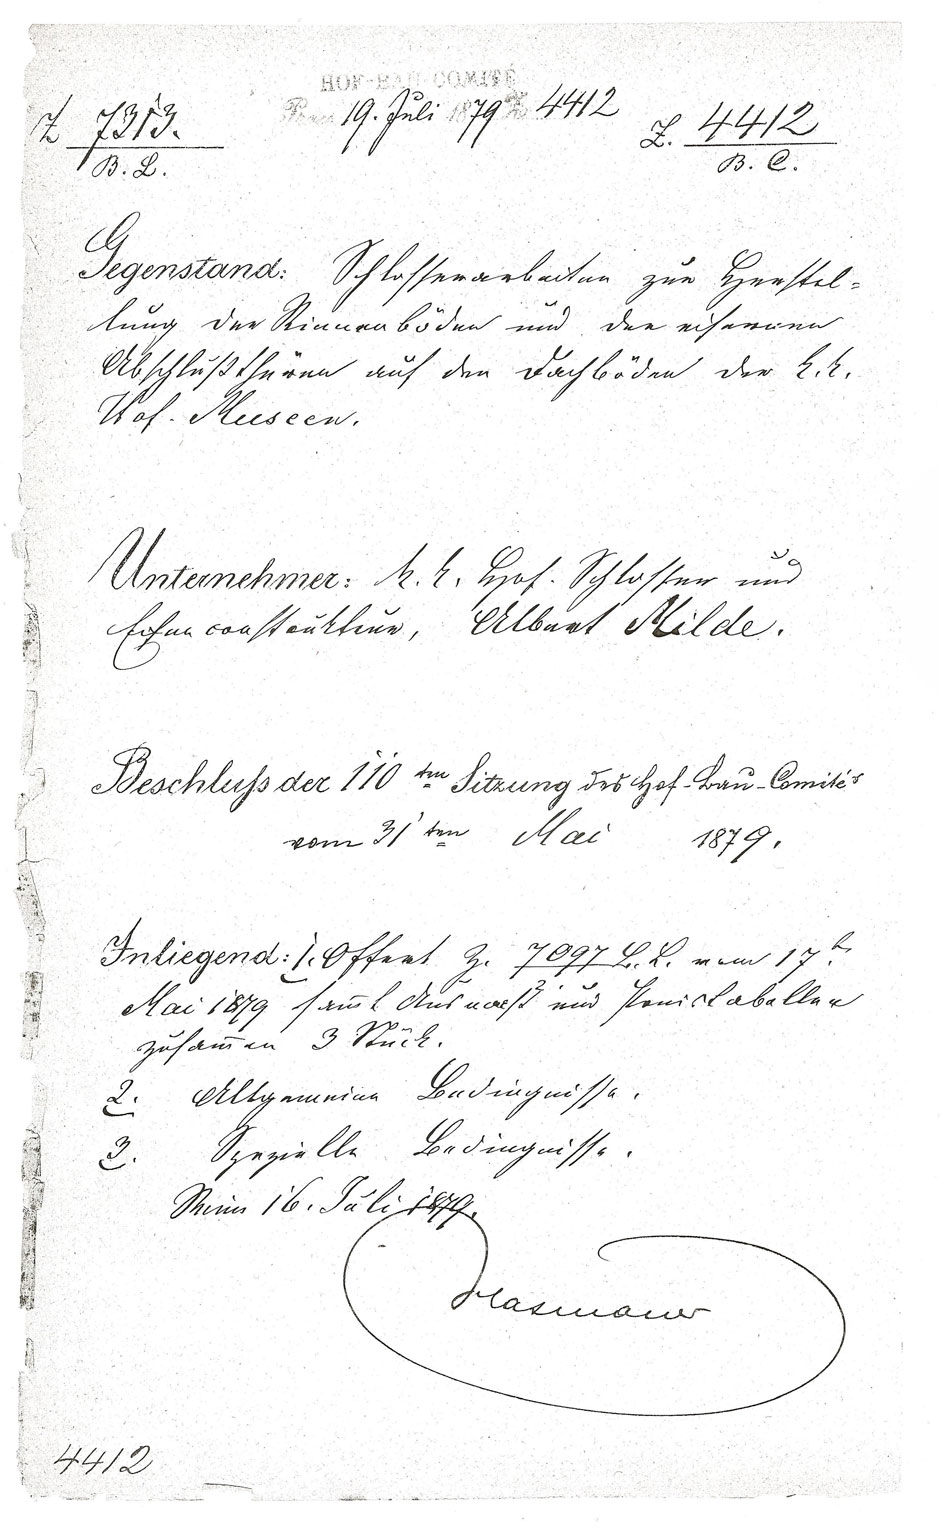 HOF-BAU-COMITÉ
Z 7313. 19. Juli 1879 Z 4412 Z. 4412
B. L. B. C.
Gegenstand: Schlosserarbeiten zur Herstel=
lung der Rinnenböden und der eisernen
Abschlußthüren auf den Dachböden der k. k.
Hof-Museen.
Unternehmer: k. k. Hof-Schlosser und
Eisenconstrukteur, Albert Milde.
Beschluss der 110ten Sitzung des Hof-Bau-Comité's
vom 31ten Mai 1879.
Inliegend: 1. Offert Z. 7097 B. L. vom 17t.
Mai 1879 sammt Ausmaß und Preistabellen
zusammen 3 Stück.
2. Allgemeine Bedingnisse.
3. Spezielle Bedingnisse.
Wien 16. Juli 1879.
Hasenauer
4412